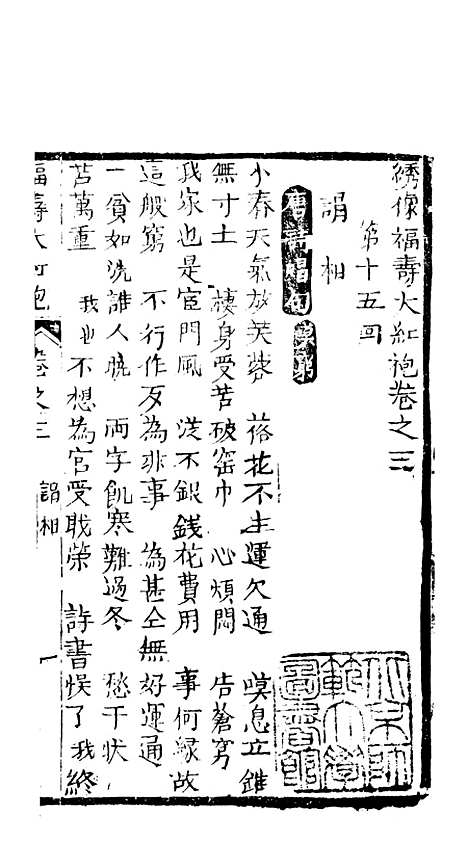 綉像福壽大紅袍卷之三
第十五回
謁相
唐詩唱句
小春天氣放芙蓉　落花不生運欠通　嘆息立錐
無寸土　棲身受苦破窑中　心煩悶　告蒼穹
我家也是宦門風　没不銀錢花費用　事何緣故
這般窮　不行作歹為非事　為甚仝無好運通
一貧如洗誰人曉　兩字飢寒難過冬　愁千狀
苦萬重　我也不想為官受職榮　詩書悞了我終
福壽大紅袍　卷之三　謁相　一
北京師
範大學
圖書館